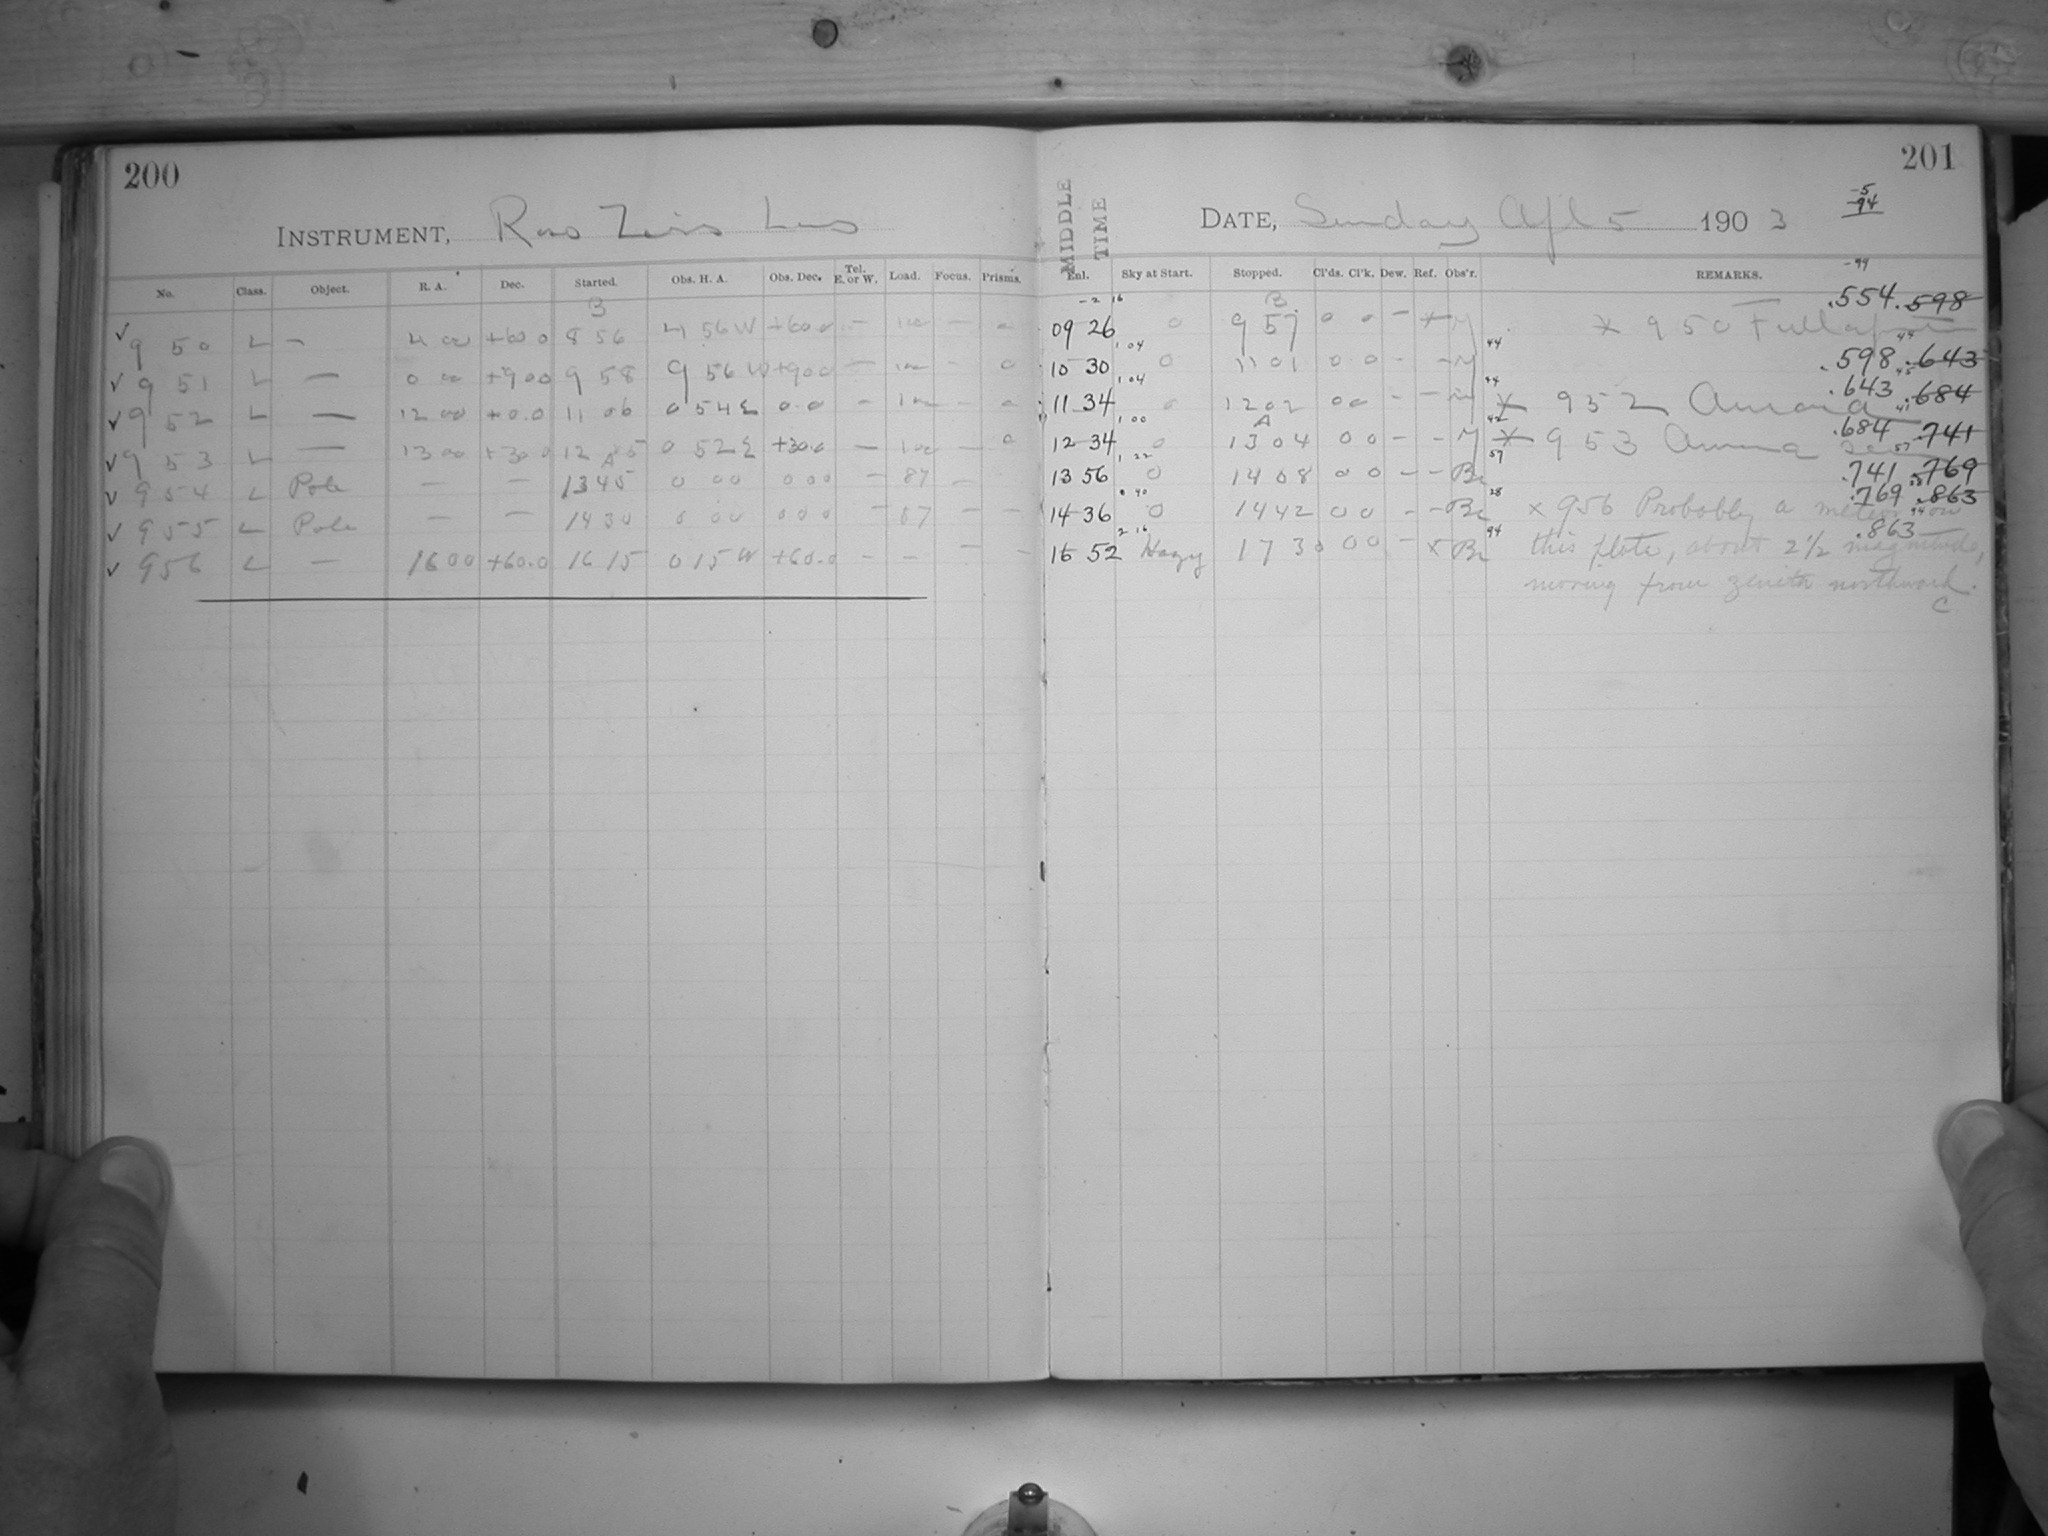 200
INSTRUMENT, Ross Zeiss Lens
No. Class. Object. R. A. Dec. Started. Obs. H. A. Obs. Dec. Tel. E. or W. Load. Focus. Prisms.
B
✓ 950 L — 4 00 +60 0 8 56 4 56 W +60 0 — 100 — 0
✓ 951 L — 0 00 +90 0 9 58 9 56 W +90 0 — 100 — 0
✓ 952 L — 12 00 +0.0 11 06 0 54 E 0.0 — 100 — 0
✓ 953 L — 13 00 +30 0 12 05 0 52 E +30.0 — 100 — 0
A
✓ 954 L Pole — — 13 45 0 00 0 0 0 — 87 —
✓ 955 L Pole — — 14 30 0 00 0 0 0 — 87 — —
✓ 956 L — 16 00 +60.0 16 15 0 15 W +60.0 — — — —
201
MIDDLE TIME
DATE, Sunday Apl 5 1903
-5
94
Enl. Sky at Start. Stopped. Cl'ds. Cl'k. Dew. Ref. Obs'r. REMARKS.
-99
-2 16 B .554 .598
09 26 0 9 57 0 0 — x M x 950 Full
1 04 44 44
10 30 0 11 01 0 0 — — M .598 .643
1 04 44 45 .643 .684
11 34 0 12 02 0 0 — — M x 952 Aurora
1 00 A 42 41 .684 .741
12 34 0 13 04 0 0 — — M x 953 Aurora
1 22 57 57
13 56 0 14 08 0 0 — — Br .741 .769
0 40 28 28 .769 .863
14 36 0 14 42 0 0 — — Br x 956 Probably a meteor on
2 16 94 94 .863
16 52 Hazy 17 30 0 0 — x Br this plate, about 2½ magnitude,
moving from zenith northward.
C